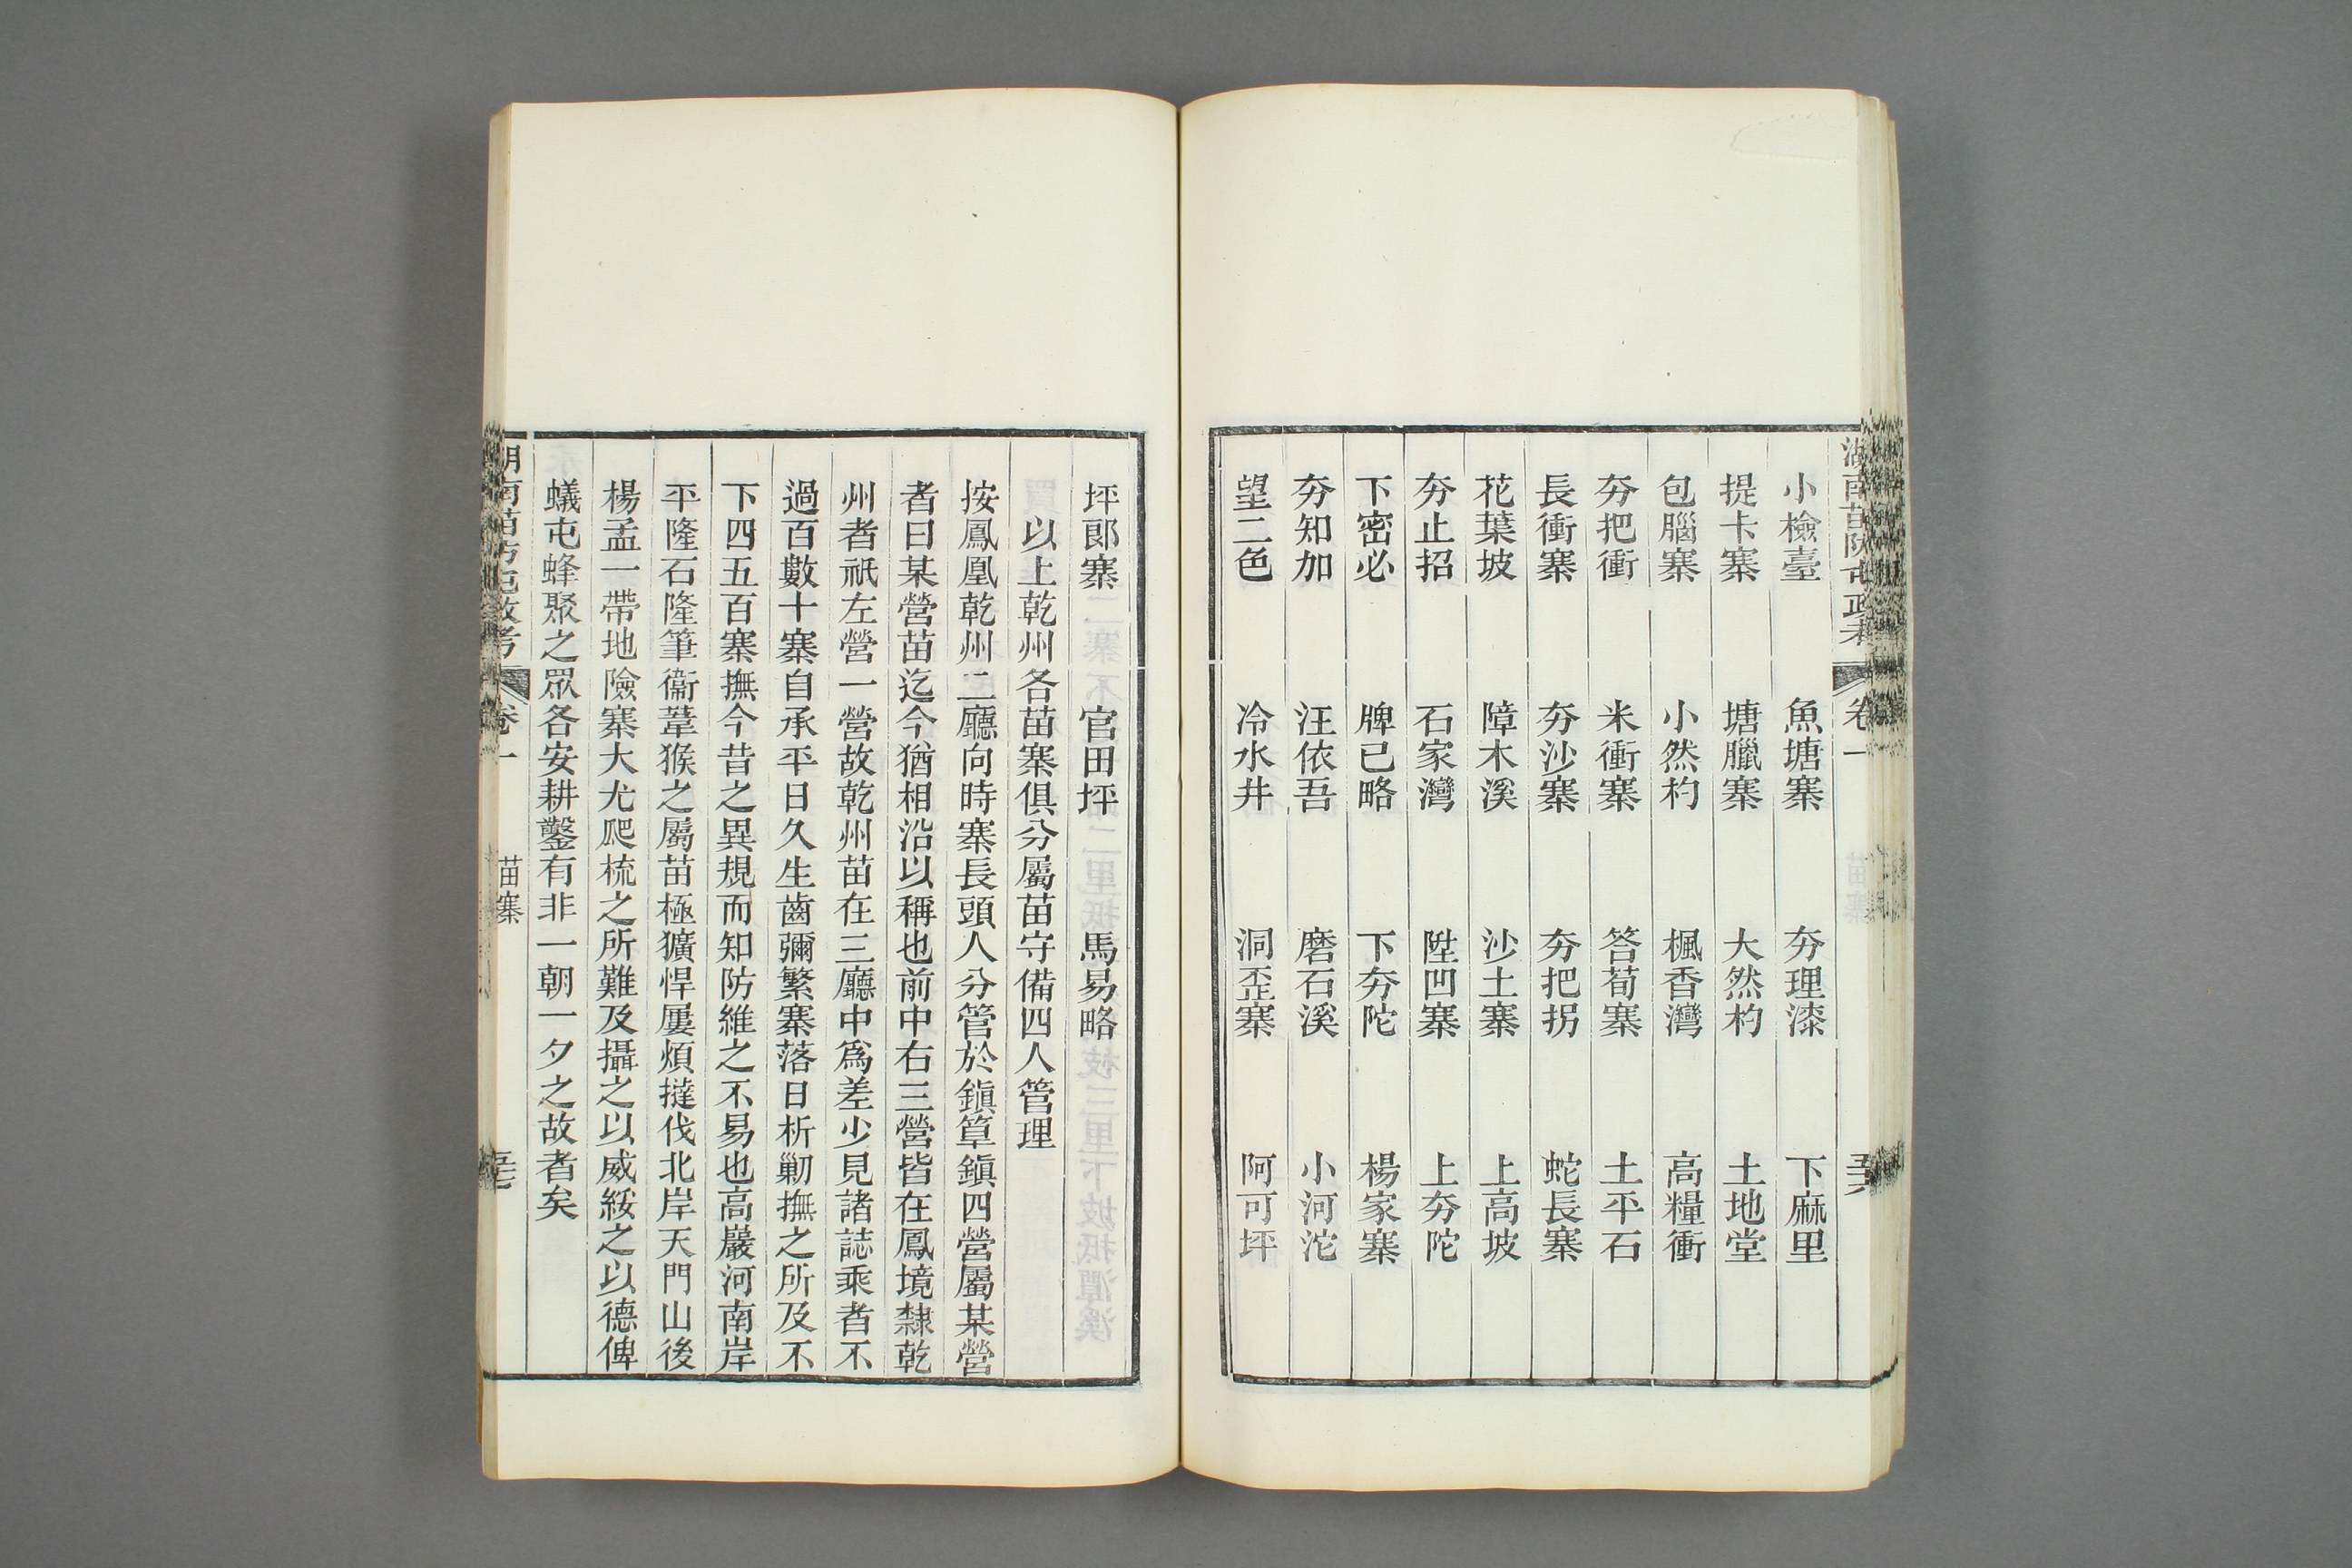 湖南苗防屯政考 卷一
小檢臺 魚塘寨 夯理漆 下麻里
提卡寨 塘臘寨 大然杓 土地堂
包腦寨 小然杓 楓香灣 高糧衝
夯把衝 米衝寨 答荀寨 土平石
長衝寨 夯沙寨 夯把拐 蛇長寨
花葉坡 障木溪 沙土寨 上高坡
夯止招 石家灣 陞凹寨 上夯陀
下密必 牌已略 下夯陀 楊家寨
夯知加 汪依吾 磨石溪 小河沱
望二色 冷水井 洞歪寨 阿可坪
坪郎寨 官田坪 馬易略
以上乾州各苗寨俱分屬苗守備四人管理
按鳳凰乾州二廳向時寨長頭人分管於鎮筸鎮四營屬某營
者曰某營苗迄今猶相沿以稱也前中右三營皆在鳳境隸乾
州者祇左營一營故乾州苗在三廳中爲差少見諸誌乘者不
過百數十寨自承平日久生齒彌繁寨落日析勦撫之所及不
下四五百寨撫今昔之異規而知防維之不易也高巖河南岸
平隆石隆筆衞葦猴之屬苗極獷悍屢煩撻伐北岸天門山後
楊孟一帶地險寨大尤爬梳之所難及攝之以威綏之以德俾
蟻屯蜂聚之眾各安耕鑿有非一朝一夕之故者矣
湖南苗防屯政考 卷一 苗寨